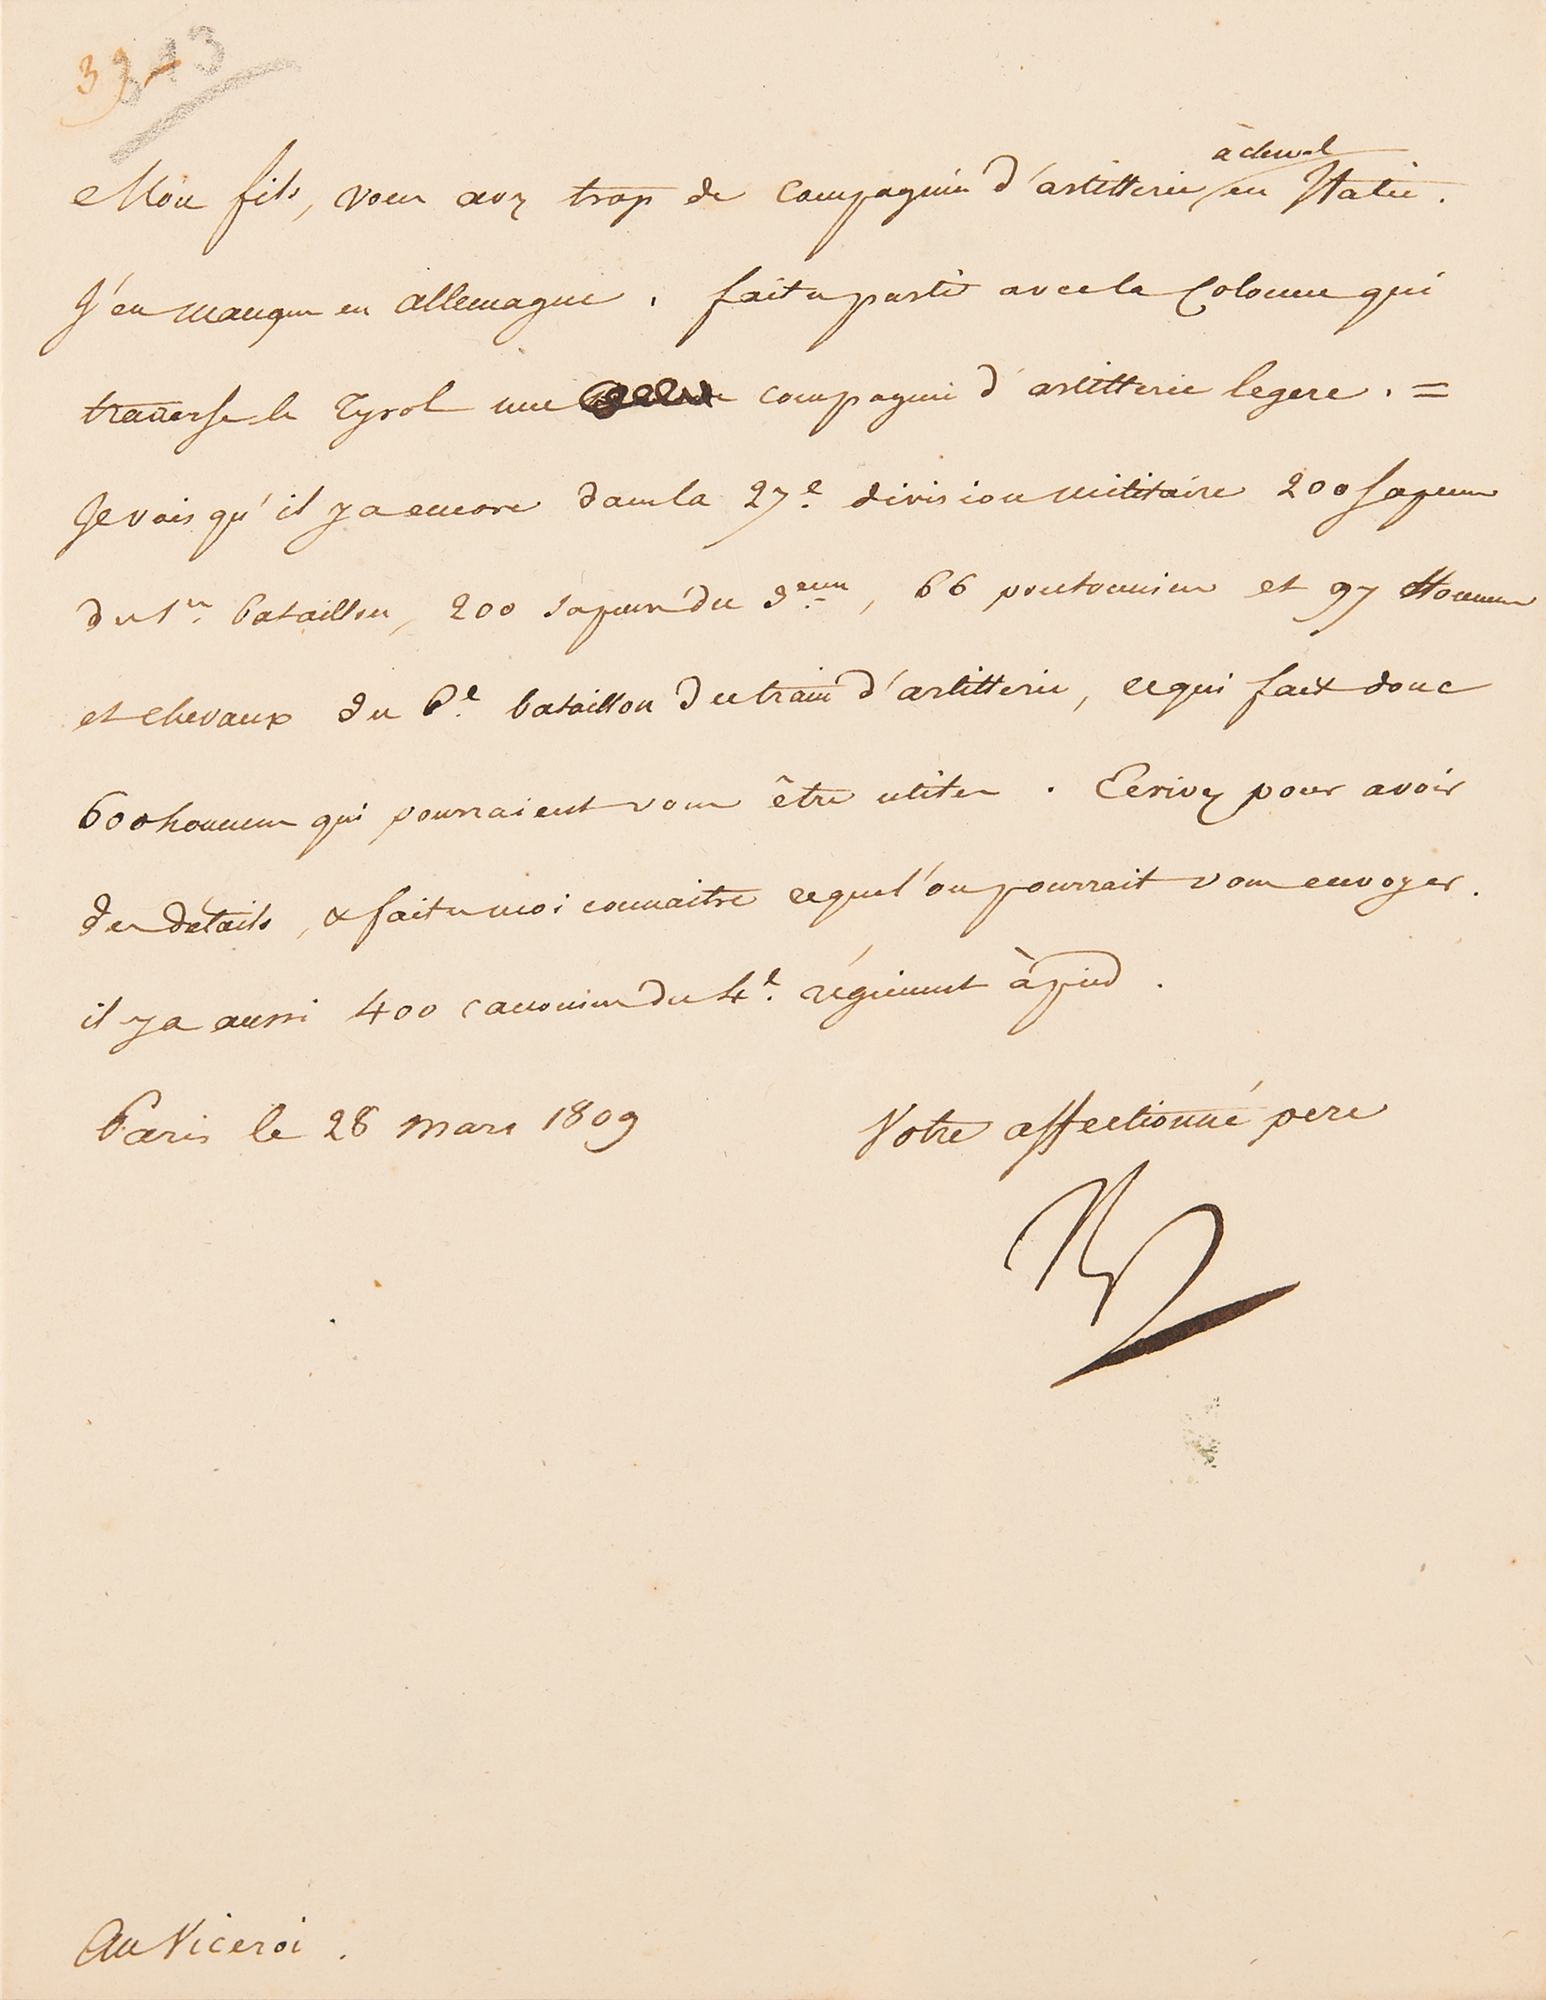 39
313
à cheval
Mon fils, vous avez trop de compagnies d'artillerie en Italie.
J'en manque en allemagne. faites partir avec la Colonne qui
traverse le Tyrol une compagnie d'artillerie legere. =
Je vois qu'il y a encore dans la 27e. division militaire 200 sapeurs
du 1er. bataillon, 200 sapeurs du 3eme, 66 pontonniers et 97 Hommes
et chevaux du 6e. bataillon du train d'artillerie, ce qui fait donc
600 hommes qui pourraient vous être utiles. Ecrivez pour avoir
des détails, & faites moi connaitre ce que l'on pourrait vous envoyer.
il y a aussi 400 canoniers du 4e. régiment à pied.
Paris le 28 mars 1809
Votre affectionné pere
Au Viceroi.